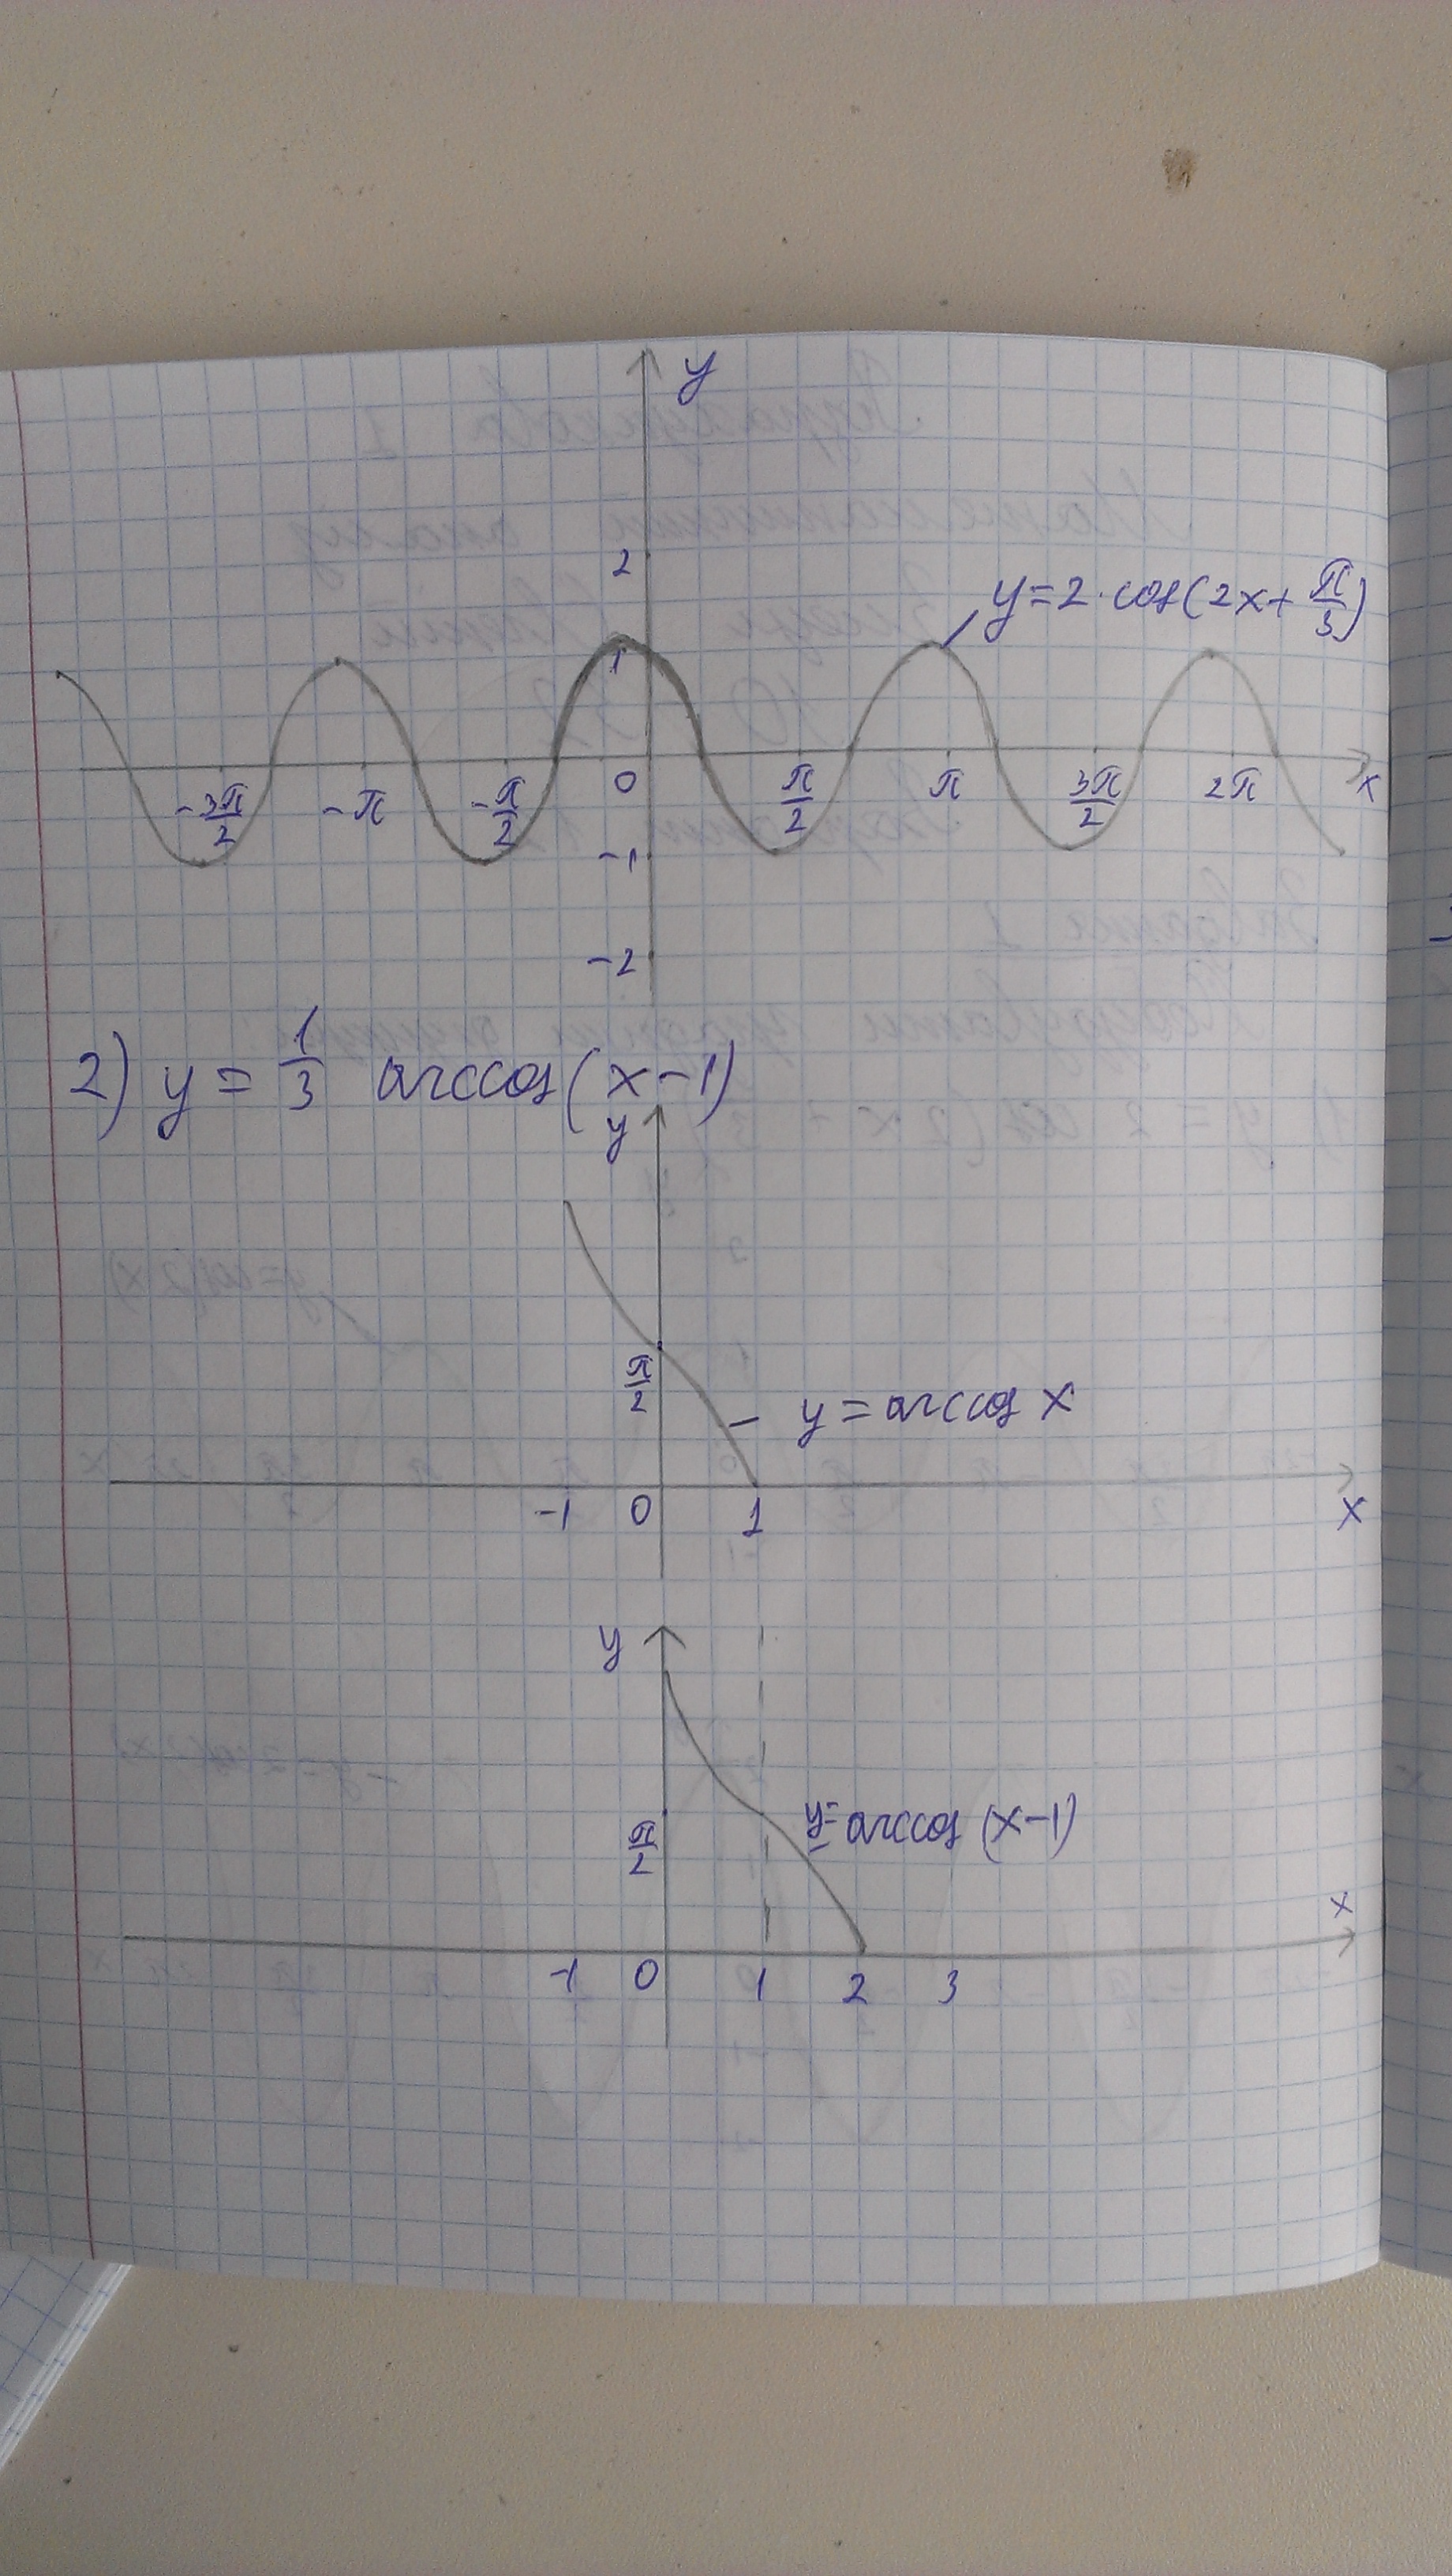 y
2
y=2·cos(2x+π/3)
1
-3π/2 -π -π/2 0 π/2 π 3π/2 2π x
-1
-2
2) y = 1/3 arccos(x-1)
y
π/2
y = arccos x
-1 0 1 x
y
π/2
y= arccos (x-1)
x
-1 0 1 2 3